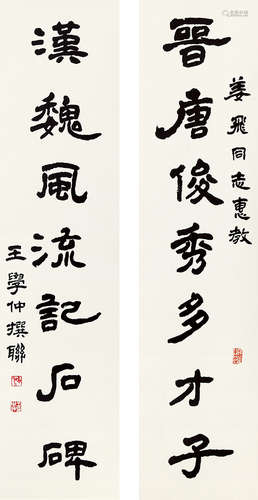 姜飛同志惠教
晉唐俊秀多才子
漢魏風流記石碑
王學仲撰聯